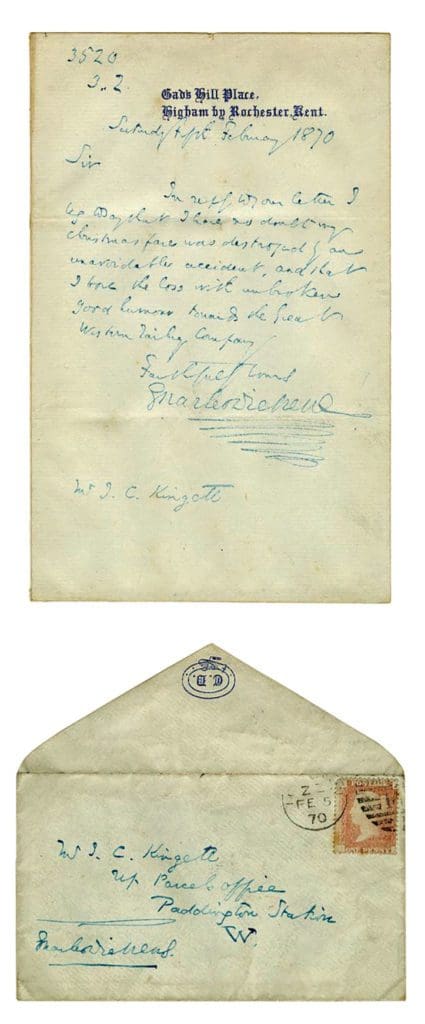 3520
Gad's Hill Place,
Higham by Rochester, Kent.
Saturday Fifth February 1870
Sir
In reply to your letter I
beg to say that I have no doubt my
Christmas fare was destroyed by an
unavoidable accident, and that
I bore the loss with unbroken
good humour towards the Great
Western Railway Company
Faithfully Yours
Charles Dickens
Mr J. C. Kingett
C.D.
FE 5
70
POSTAGE
ONE PENNY
Mr J. C. Kingett
Up Parcels office
Paddington Station
W.
Charles Dickens.